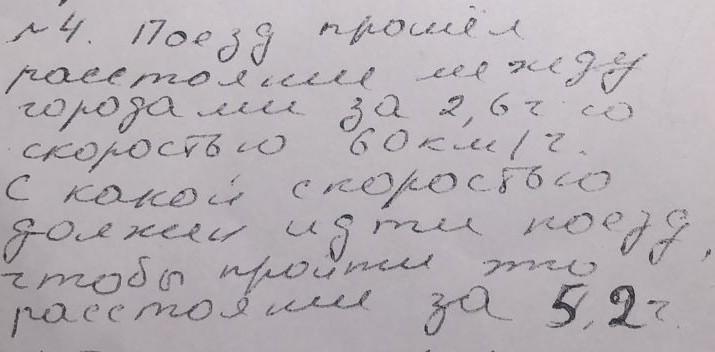 №4. Поезд прошёл
расстояние между
городами за 2,6ч со
скоростью 60км/ч.
С какой скоростью
должен идти поезд,
чтобы пройти это
расстояние за 5,2ч.